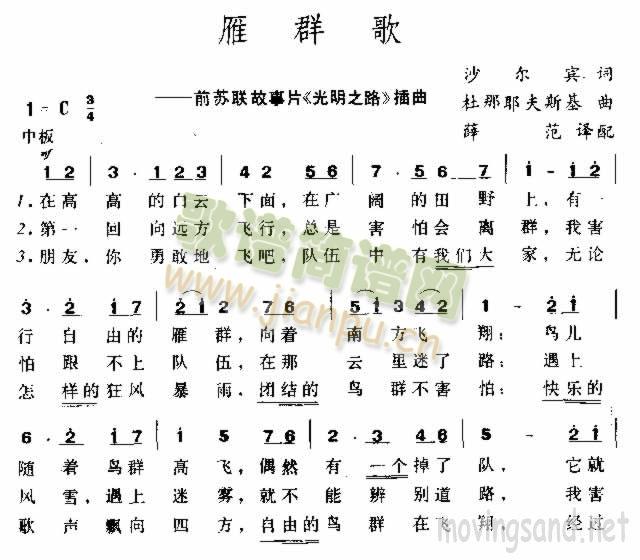 雁群歌
——前苏联故事片《光明之路》插曲
沙尔宾 词
杜那耶夫斯基 曲
薛范 译配
1=C 3/4
中板
mf
1 2 | 3 · 1 2 3 | 4 2 5 6 | 7 · 5 6 7 | 1 - 1 2 |
1.在高高的白云下面,在广阔的田野上,有一
2.第一回向远方飞行,总是害怕会离群,我害
3.朋友,你勇敢地飞吧,队伍中有我们大家,无论
3 · 2 1 7 | 2 1 7 6 | 5 1 3 4 2 | 1 - 2 1 |
行自由的雁群,向着南方飞翔;鸟儿
怕跟不上队伍,在那云里迷了路;遇上
怎样的狂风暴雨,团结的鸟群不害怕;快乐的
6 · 2 1 7 | 1 5 7 6 | 2 · 3 4 6 | 5 - 2 1 |
随着鸟群高飞,偶然有一个掉了队,它就
风雪,遇上迷雾,就不能辨别道路,我害
歌声飘向四方,自由的鸟群在飞翔,经过
歌谱简谱网
www.jianpu.cn
movingsand.net